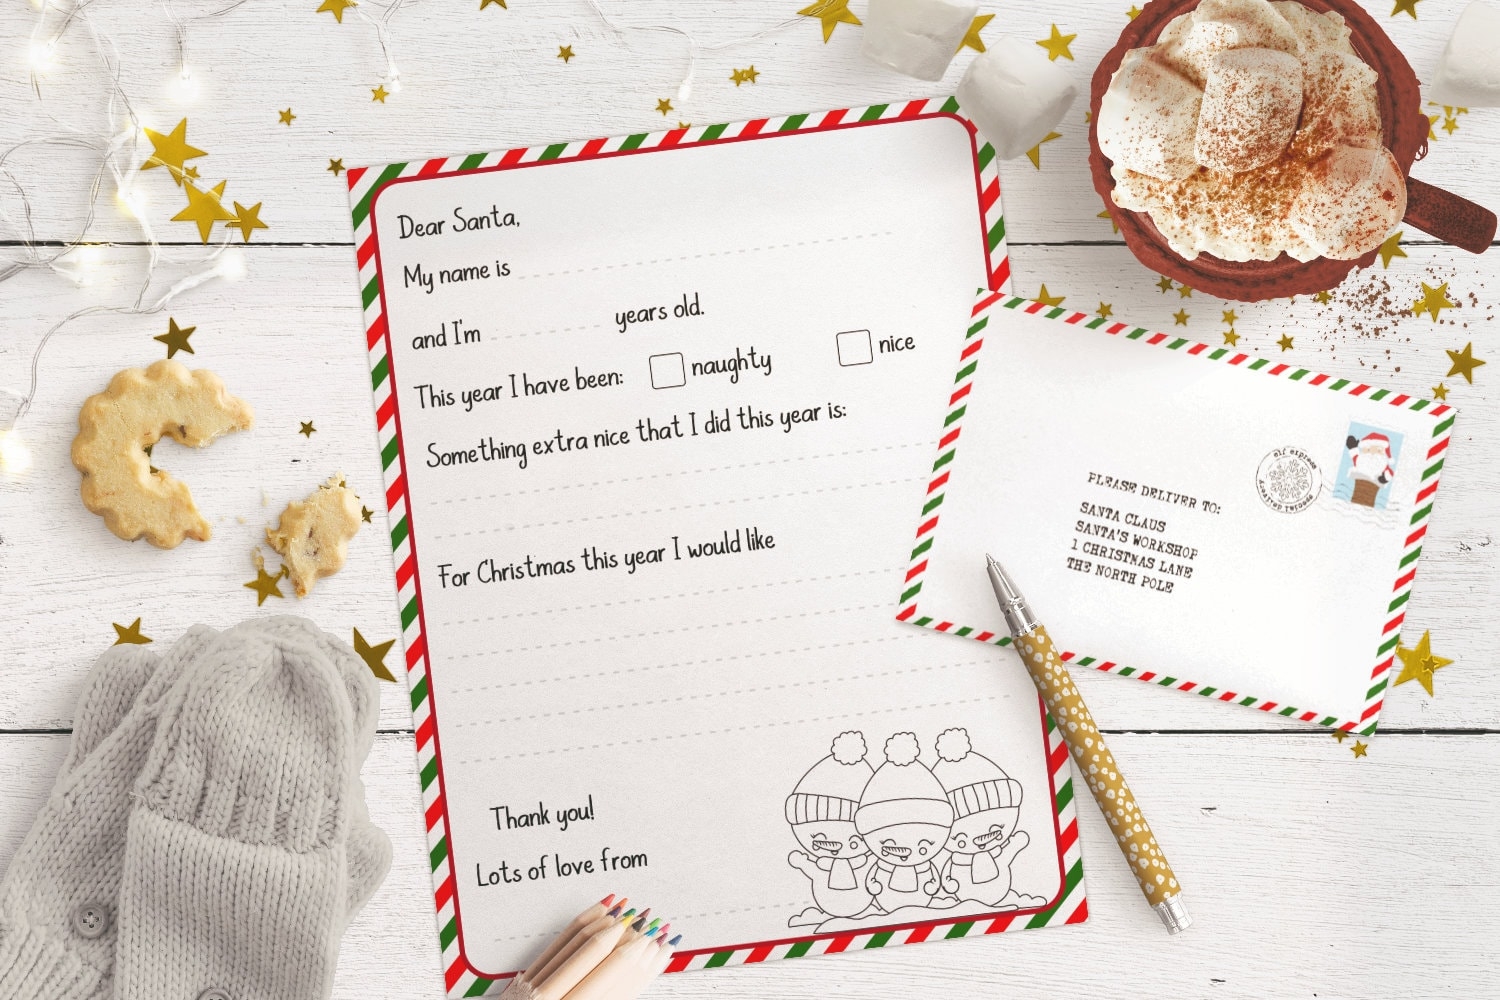 Dear Santa,
My name is
and I'm years old.
This year I have been: naughty nice
Something extra nice that I did this year is:
For Christmas this year I would like
Thank you!
Lots of love from
PLEASE DELIVER TO:
SANTA CLAUS
SANTA'S WORKSHOP
1 CHRISTMAS LANE
THE NORTH POLE
elf express